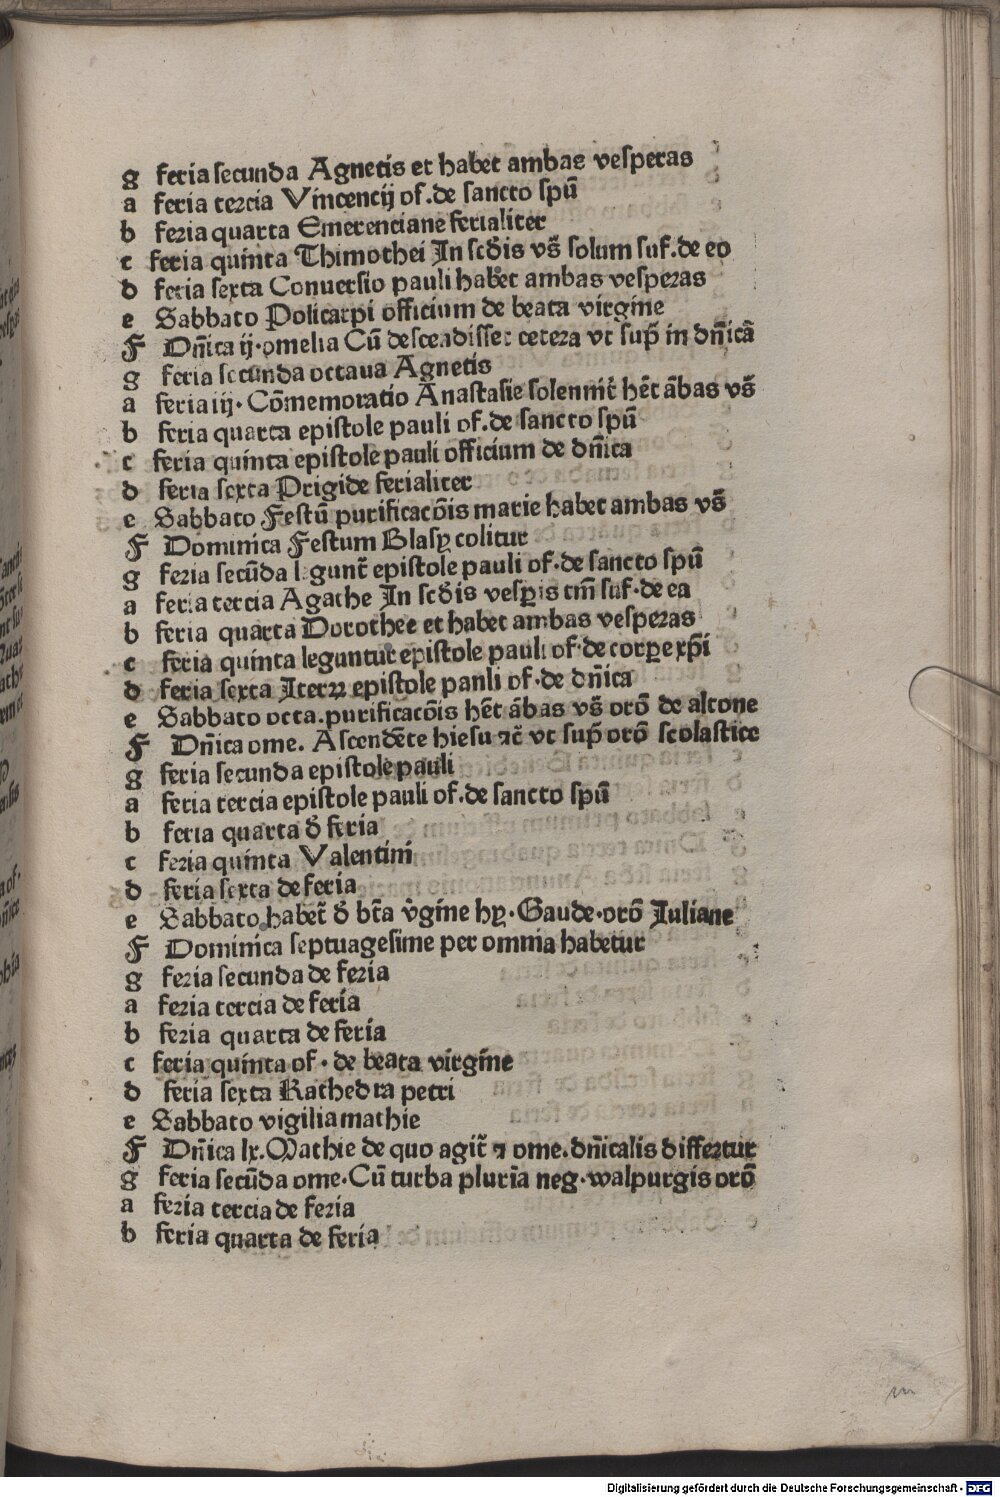 g feria secunda Agnetis et habet ambas vesperas
a feria tercia Vincencij of. de sancto spũ
b feria quarta Emerenciane ferialiter
c feria quinta Thimothei In scd̃is vs̃ solum suf. de eo
d feria sexta Conuersio pauli habet ambas vesperas
e Sabbato Policarpi officium de beata virgine
F Dñica ij. omelia Cũ descendisset cetera vt sup̃ in dñicã
g feria secunda octaua Agnetis
a feria iij. Cõmemoratio Anastasie solennit̃ hẽt ãbas vs̃
b feria quarta epistole pauli of. de sancto spũ
c feria quinta epistole pauli officium de dñica
d feria sexta Prigide ferialiter
e Sabbato Festũ purificacõis marie habet ambas vs̃
F Dominica Festum Blasy colitur
g feria secũda l gunt̃ epistole pauli of. de sancto spũ
a feria tercia Agathe In scd̃is vesꝑis tm̃ suf. de ea
b feria quarta Dorothee et habet ambas vesperas
c feria quinta leguntur epistole pauli of. de corꝑe xp̃i
d feria sexta Iteꝝ epistole panli of. de dñica
e Sabbato octa. purificacõis hẽt ãbas vs̃ orõ de altone
F Dñica ome. Ascendẽte hiesu ⁊c̃ vt sup̃ orõ scolastice
g feria secunda epistole pauli
a feria tercia epistole pauli of. de sancto spũ
b feria quarta d̃ feria
c feria quinta Valentini
d feria sexta de feria
e Sabbato habet̃ d̃ bt̃a ṽgine hy. Gaude. orõ Iuliane
F Dominica septuagesime per omnia habetur
g feria secunda de feria
a feria tercia de feria
b feria quarta de feria
c feria quinta of. de beata virgine
d feria sexta Kathedra petri
e Sabbato vigilia mathie
F Dñica lx. Mathie de quo agit̃ ⁊ ome. dñicalis differtur
g feria secũda ome. Cũ turba plurĩa neg. walpurgis orõ
a feria tercia de feria
b feria quarta de feria
m
Digitalisierung gefördert durch die Deutsche Forschungsgemeinschaft - DFG